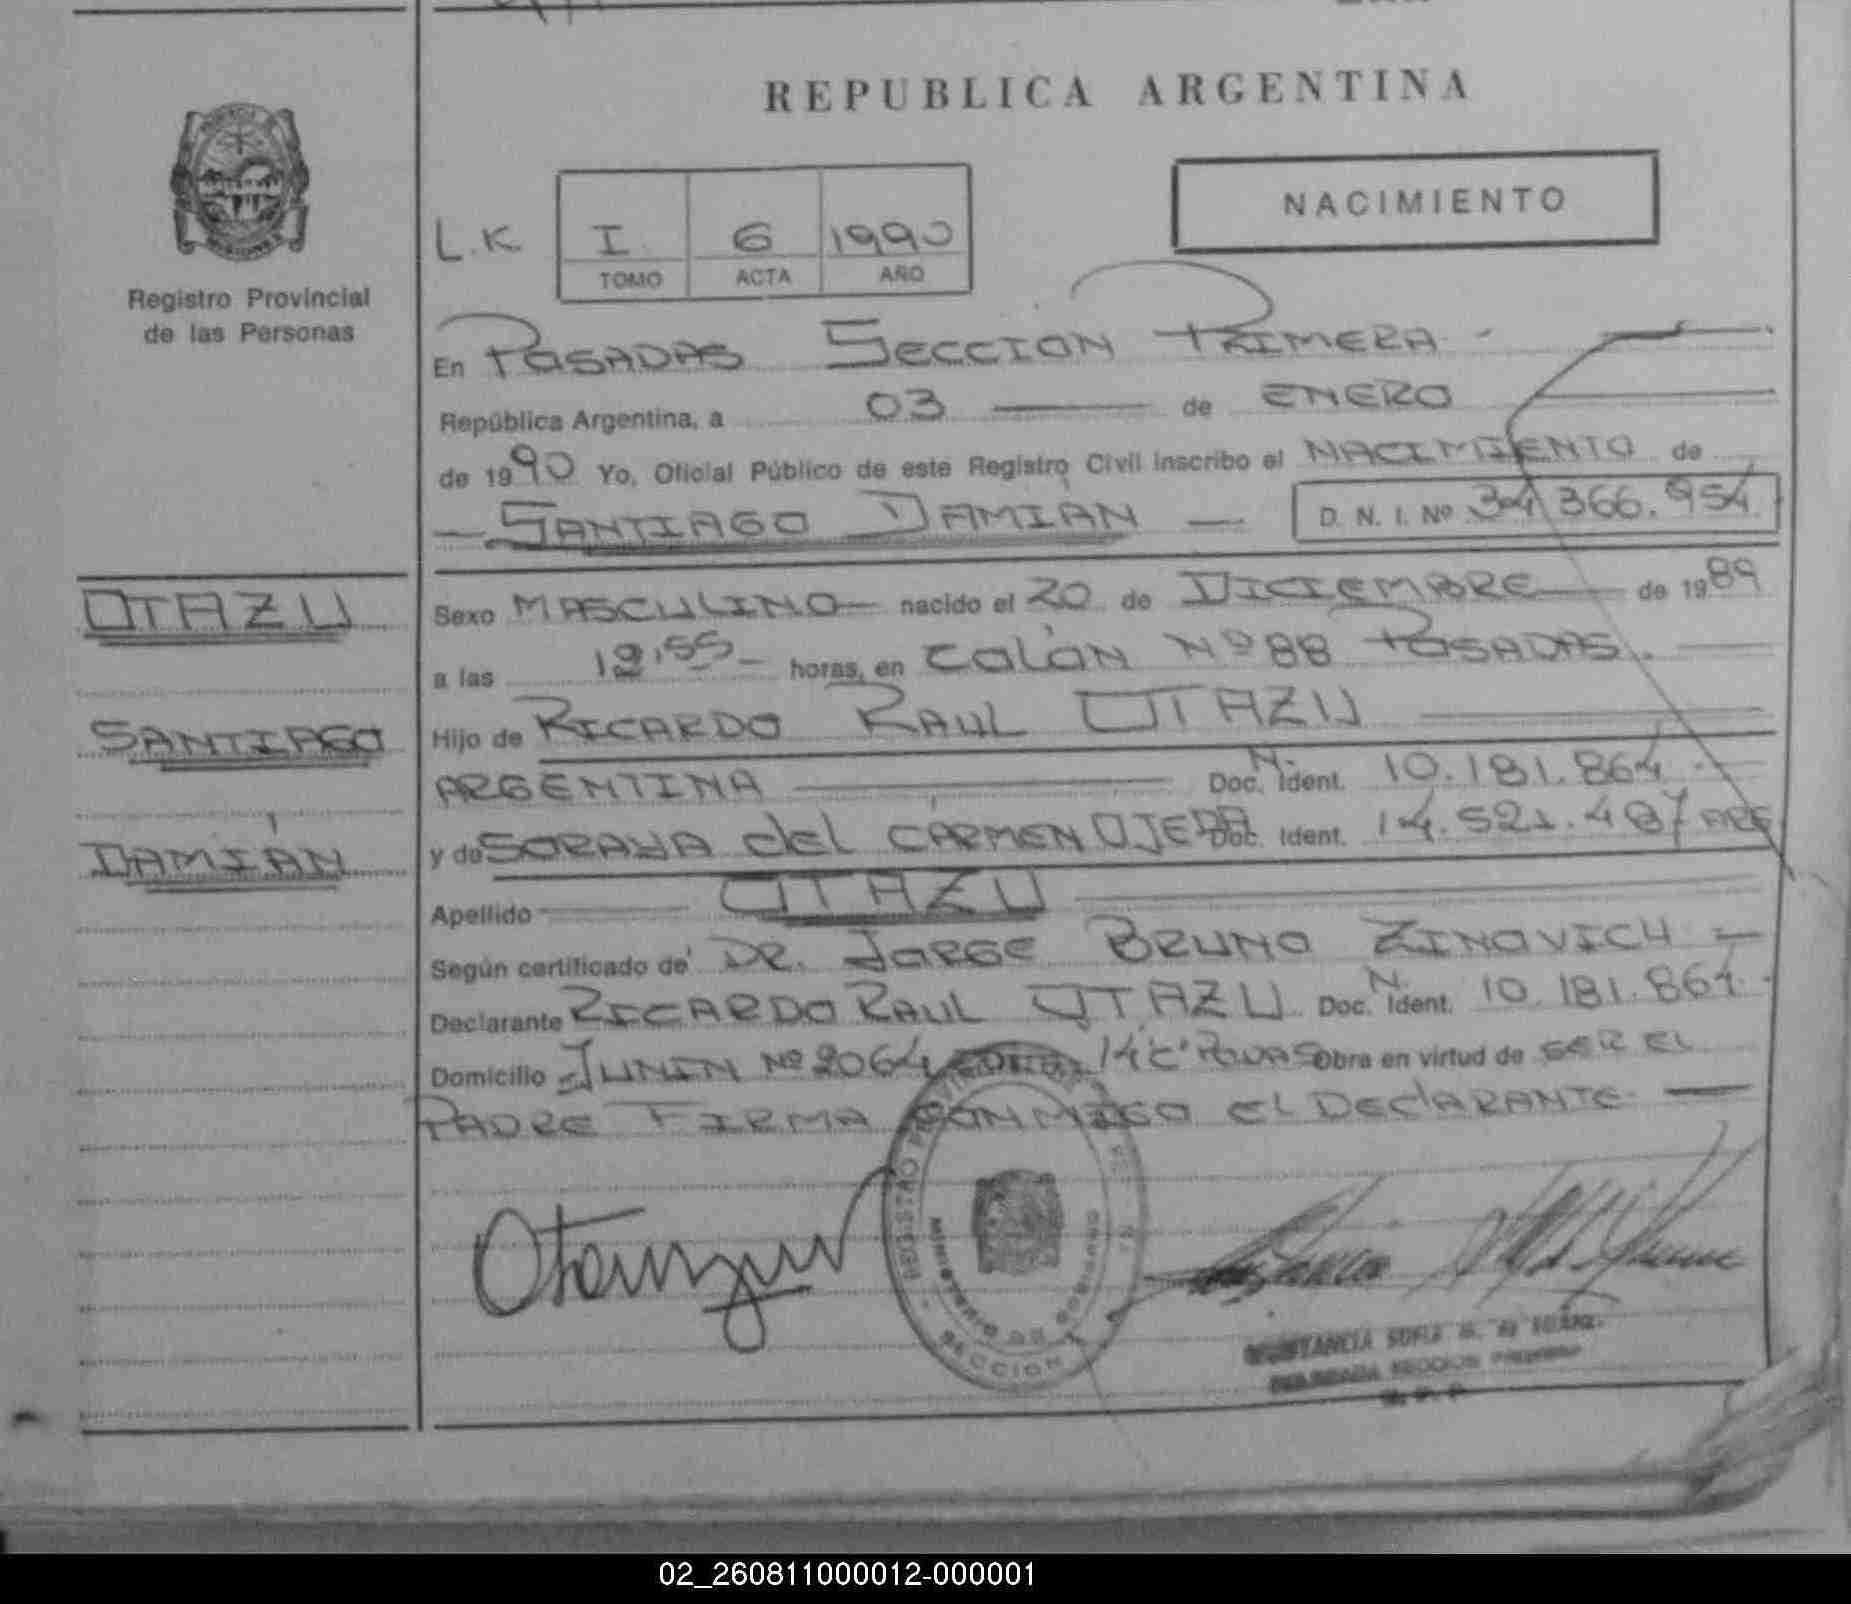 REPUBLICA ARGENTINA
NACIMIENTO
L.K I 6 1990
TOMO ACTA AÑO
Registro Provincial
de las Personas
En POSADAS SECCION PRIMERA -
República Argentina, a 03 de ENERO
de 1990 Yo, Oficial Público de este Registro Civil inscribo el NACIMIENTO de
SANTIAGO DAMIÁN D. N. I. Nº 34.366.954
OTAZU
SANTIAGO
DAMIÁN
Sexo MASCULINO nacido el 20 de DICIEMBRE de 1989
a las horas, en COLÓN Nº 88 POSADAS.
Hijo de RICARDO RAUL OTAZU
ARGENTINA Doc. N. Ident. 10.181.864
y de SORAYA del CARMEN OJEDA Doc. Ident. 14.521.487 ARG
Apellido OTAZU
Según certificado de DR. JORGE BRUNO ZINOVICH
Declarante RICARDO RAUL OTAZU Doc. N. Ident. 10.181.864
Domicilio JUNIN Nº 2064 Obra en virtud de SER EL
PADRE FIRMA CONMIGO EL DECLARANTE
REGISTRO
MINISTERIO DE GOBIERNO
SECCION
02_260811000012-000001